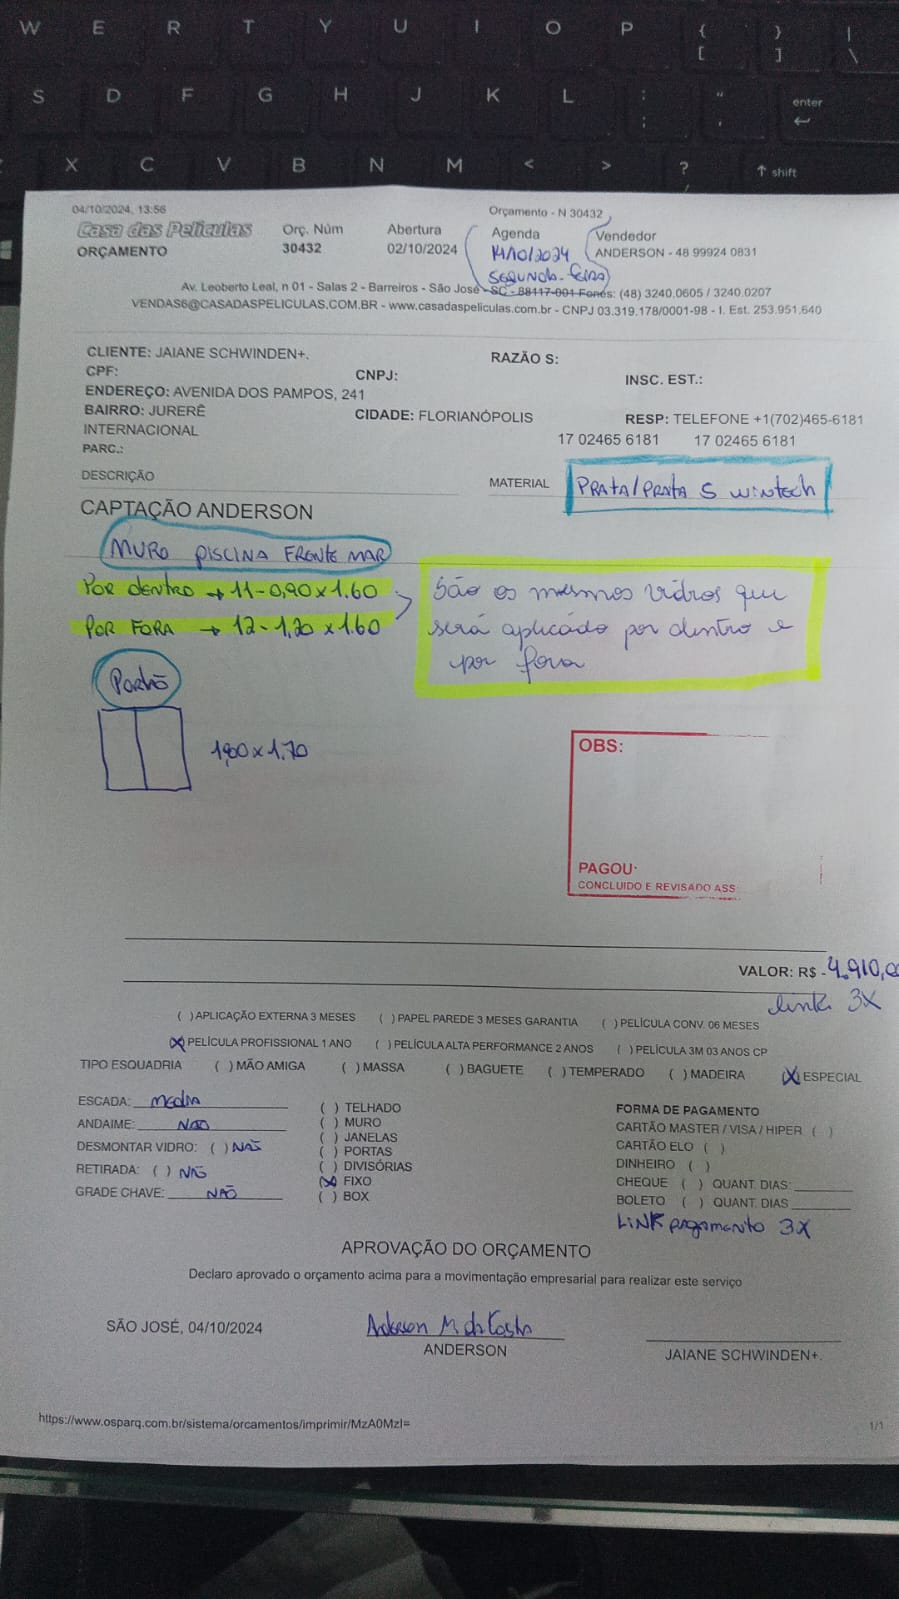 W E R T Y U I O P { [ } ] | \
S D F G H J K L : ; " , enter
X C V B N M < > ? shift
04/10/2024, 13:56
Orçamento - N 30432
Casa das Películas
ORÇAMENTO
Orç. Núm
30432
Abertura
02/10/2024
Agenda
14/10/2024
SEGUNDA-feira
Vendedor
ANDERSON - 48 99924 0831
Av. Leoberto Leal, n 01 - Salas 2 - Barreiros - São José - SC - 88117-001 Fones: (48) 3240.0605 / 3240.0207
VENDAS6@CASADASPELICULAS.COM.BR - www.casadaspeliculas.com.br - CNPJ 03.319.178/0001-98 - I. Est. 253.951.640
CLIENTE: JAIANE SCHWINDEN+.
RAZÃO S:
CPF:
CNPJ:
INSC. EST.:
ENDEREÇO: AVENIDA DOS PAMPOS, 241
BAIRRO: JURERÊ
INTERNACIONAL
CIDADE: FLORIANÓPOLIS
RESP: TELEFONE +1(702)465-6181
17 02465 6181 17 02465 6181
PARC.:
DESCRIÇÃO
MATERIAL
PRATA/PRATA S WINTECH
CAPTAÇÃO ANDERSON
MURO PISCINA FRENTE MAR
POR DENTRO → 11-0,90x1.60
POR FORA → 12-1,20x1.60
São os mesmos vidros que
será aplicado por dentro e
por fora
Portão
1,80x1.70
OBS:
PAGOU:
CONCLUIDO E REVISADO ASS
VALOR: R$ - 4.910,00
link 3X
( ) APLICAÇÃO EXTERNA 3 MESES ( ) PAPEL PAREDE 3 MESES GARANTIA ( ) PELÍCULA CONV. 06 MESES
(X) PELÍCULA PROFISSIONAL 1 ANO ( ) PELÍCULA ALTA PERFORMANCE 2 ANOS ( ) PELÍCULA 3M 03 ANOS CP
TIPO ESQUADRIA ( ) MÃO AMIGA ( ) MASSA ( ) BAGUETE ( ) TEMPERADO ( ) MADEIRA (X) ESPECIAL
ESCADA: MEDIA
ANDAIME: NÃO
DESMONTAR VIDRO: ( ) NÃO
RETIRADA: ( ) NÃO
GRADE CHAVE: NÃO
( ) TELHADO
( ) MURO
( ) JANELAS
( ) PORTAS
( ) DIVISÓRIAS
(X) FIXO
( ) BOX
FORMA DE PAGAMENTO
CARTÃO MASTER / VISA / HIPER ( )
CARTÃO ELO ( )
DINHEIRO ( )
CHEQUE ( ) QUANT. DIAS:
BOLETO ( ) QUANT. DIAS
LINK pagamento 3X
APROVAÇÃO DO ORÇAMENTO
Declaro aprovado o orçamento acima para a movimentação empresarial para realizar este serviço
SÃO JOSÉ, 04/10/2024
Anderson M. da Costa
ANDERSON
JAIANE SCHWINDEN+.
https://www.osparq.com.br/sistema/orcamentos/imprimir/MzA0MzI=
1/1